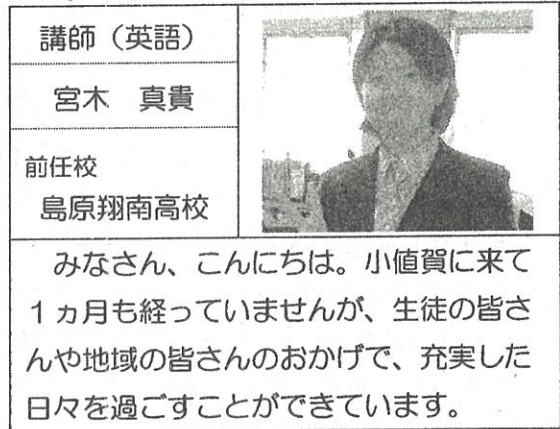 講師（英語）
宮木　真貴
前任校
島原翔南高校
　みなさん、こんにちは。小値賀に来て
１ヵ月も経っていませんが、生徒の皆さ
んや地域の皆さんのおかげで、充実した
日々を過ごすことができています。